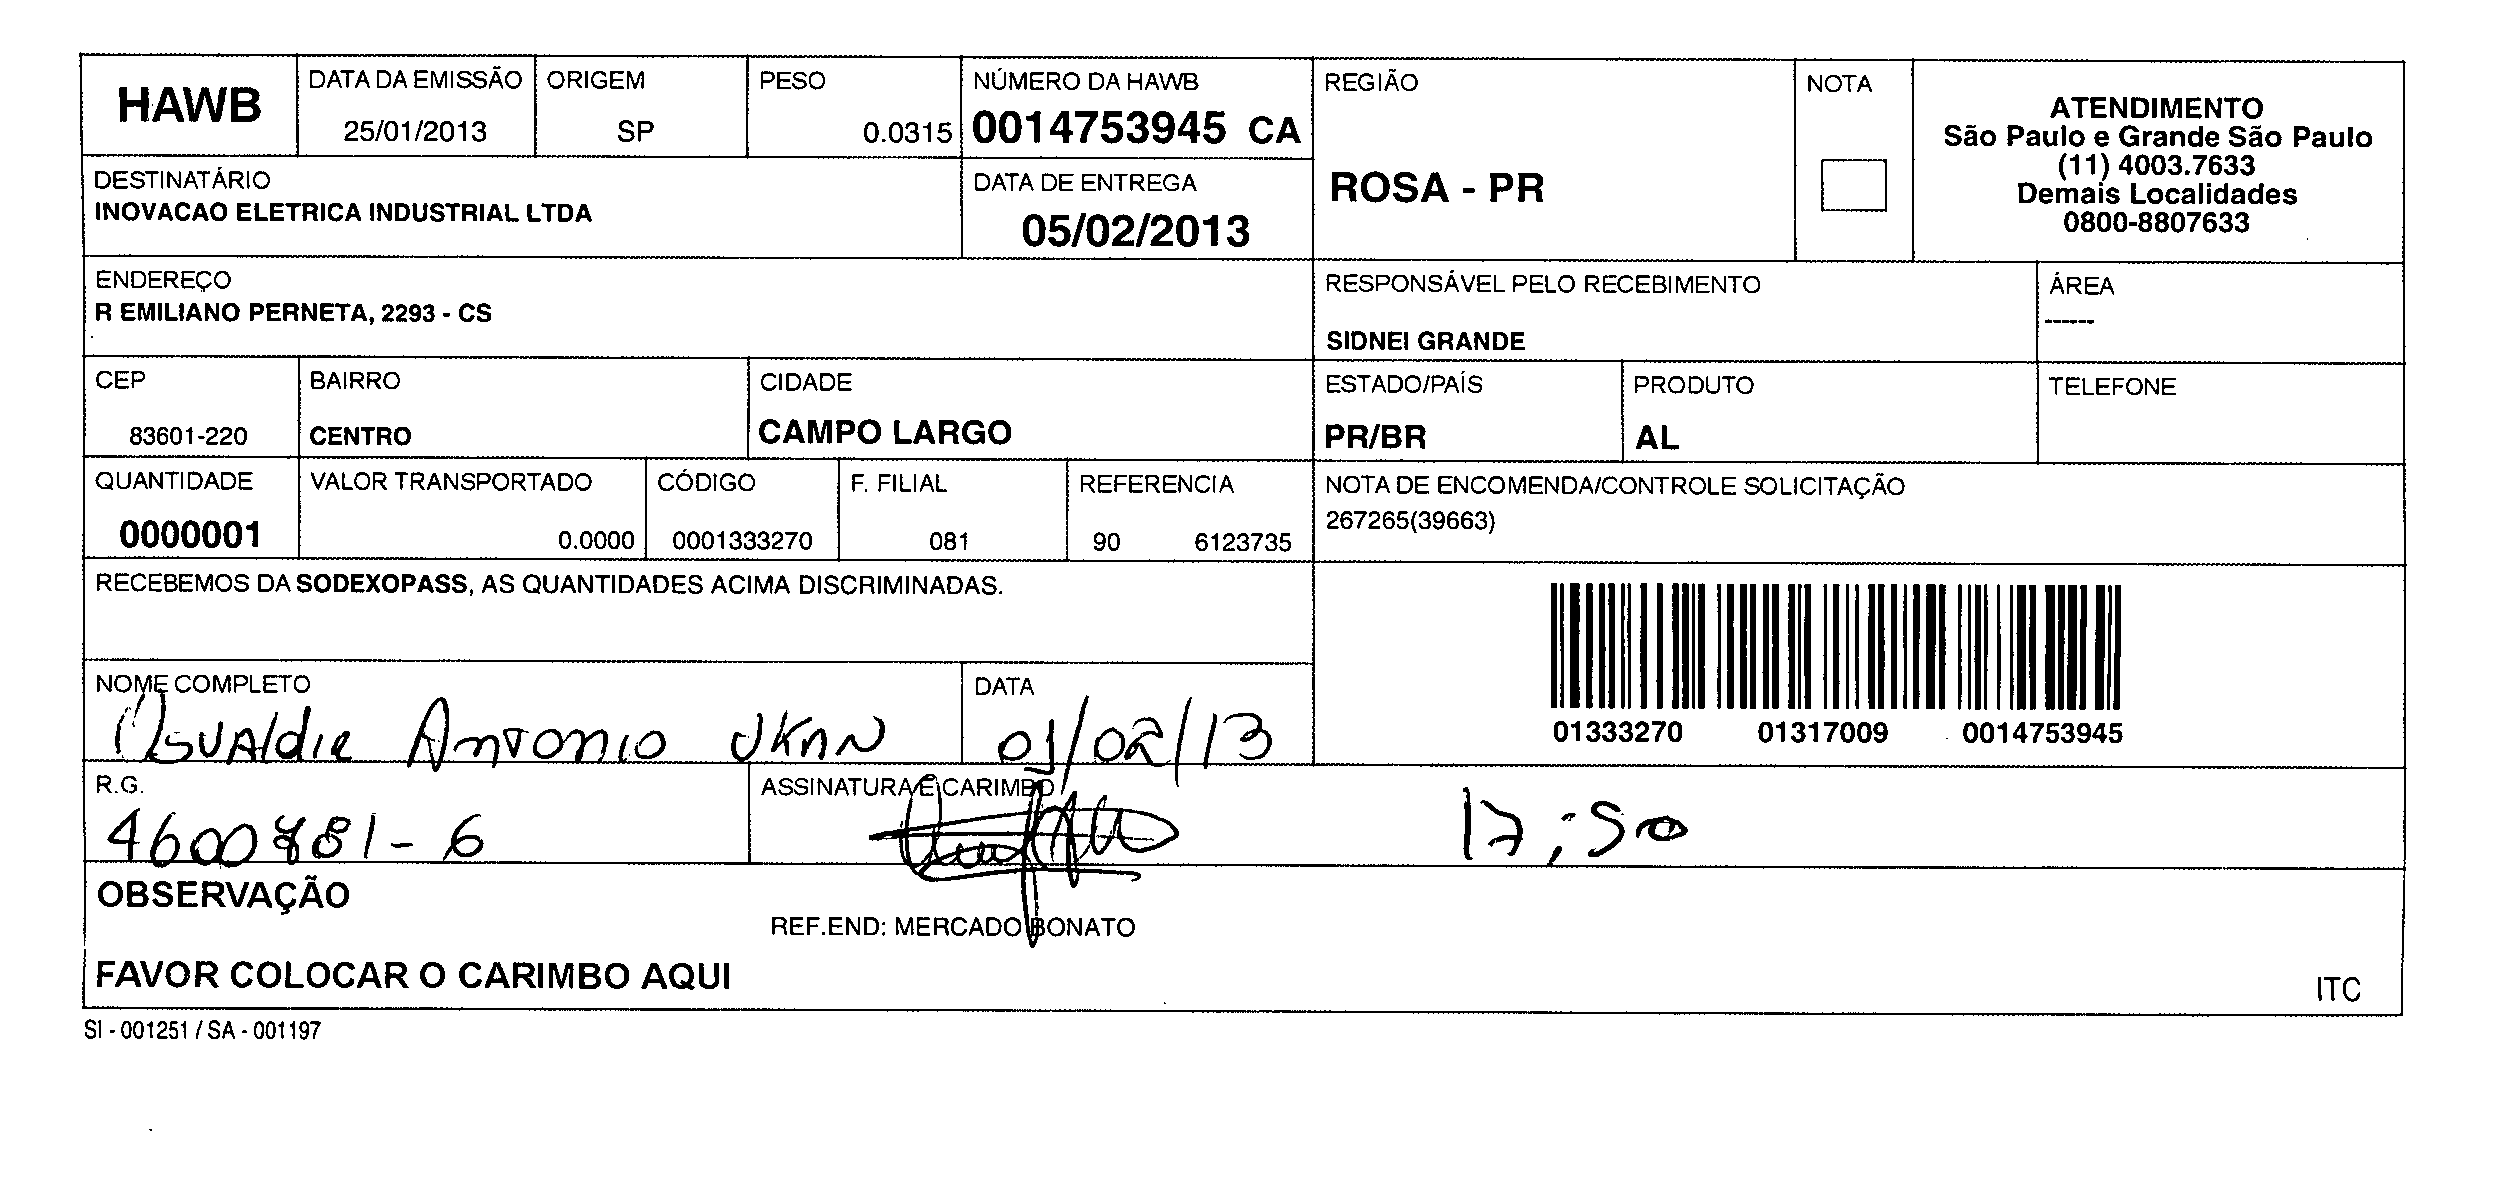 HAWB
DATA DA EMISSÃO
25/01/2013
ORIGEM
SP
PESO
0.0315
NÚMERO DA HAWB
0014753945 CA
REGIÃO
ROSA - PR
NOTA
ATENDIMENTO
São Paulo e Grande São Paulo
(11) 4003.7633
Demais Localidades
0800-8807633
DESTINATÁRIO
INOVACAO ELETRICA INDUSTRIAL LTDA
DATA DE ENTREGA
05/02/2013
ENDEREÇO
R EMILIANO PERNETA, 2293 - CS
RESPONSÁVEL PELO RECEBIMENTO
SIDNEI GRANDE
ÁREA
------
CEP
83601-220
BAIRRO
CENTRO
CIDADE
CAMPO LARGO
ESTADO/PAÍS
PR/BR
PRODUTO
AL
TELEFONE
QUANTIDADE
0000001
VALOR TRANSPORTADO
0.0000
CÓDIGO
0001333270
F. FILIAL
081
REFERENCIA
90 6123735
NOTA DE ENCOMENDA/CONTROLE SOLICITAÇÃO
267265(39663)
RECEBEMOS DA SODEXOPASS, AS QUANTIDADES ACIMA DISCRIMINADAS.
01333270 01317009 0014753945
NOME COMPLETO
Antonio
DATA
/02/13
R.G.
ASSINATURA E CARIMBO
OBSERVAÇÃO
REF.END: MERCADO BONATO
FAVOR COLOCAR O CARIMBO AQUI
ITC
SI - 001251 / SA - 001197